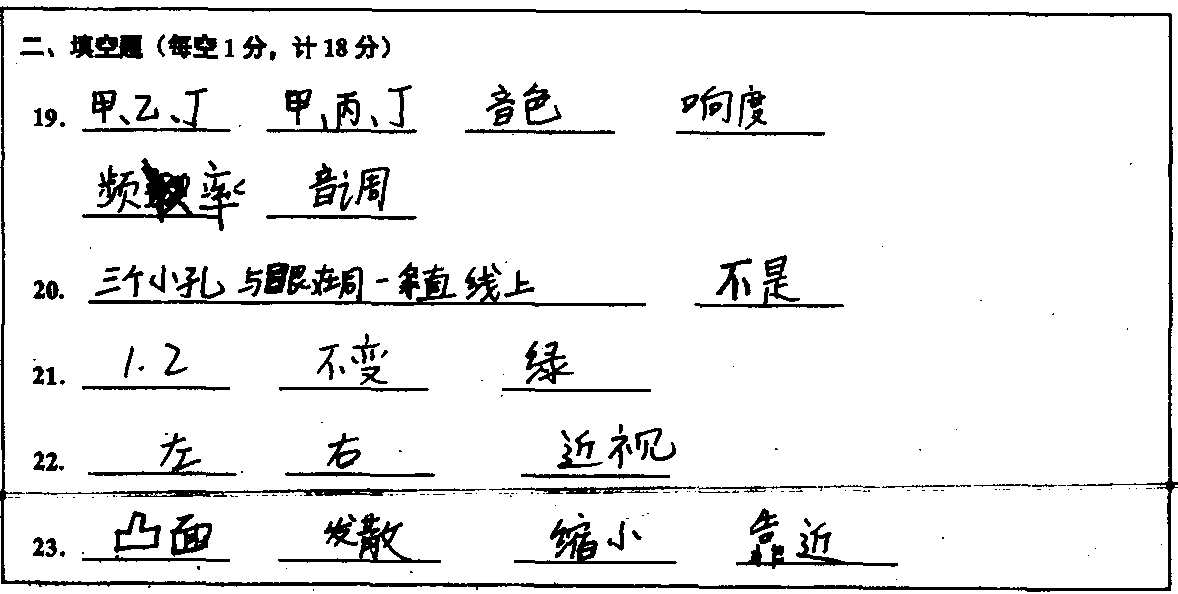 二、填空题（每空1分，计18分）
19. 甲、乙、丁 甲、丙、丁 音色 响度
频率 音调
20. 三个小孔与眼在同一条直线上 不是
21. 1.2 不变 绿
22. 左 右 近视
23. 凸面 发散 缩小 靠近